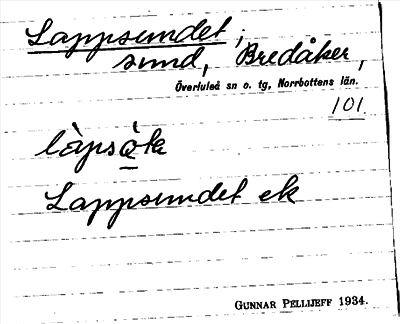 Lappsundet,
sund, Bredåker,
Överluleå sn o. tg, Norrbottens län.
101
Lappsundet ek
GUNNAR PELLIJEFF 1934.